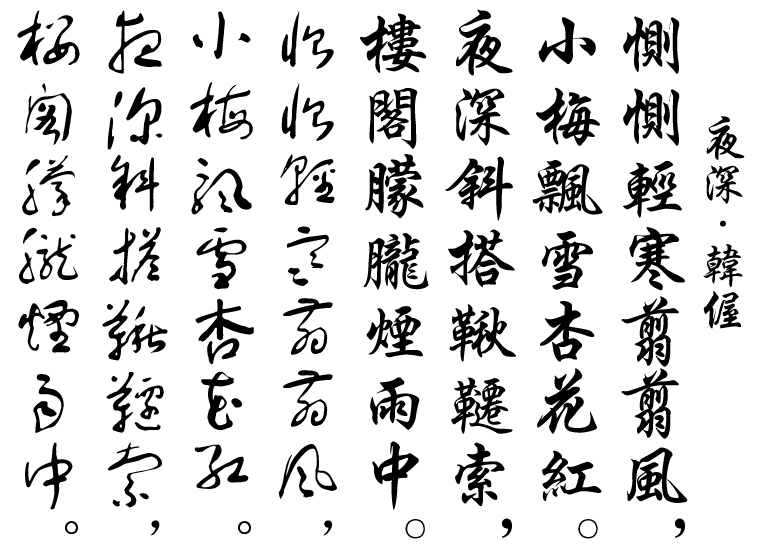 夜深·韓偓
惻惻輕寒翦翦風，
小梅飄雪杏花紅。
夜深斜搭鞦韆索，
樓閣朦朧煙雨中。
惻惻輕寒翦翦風，
小梅飄雪杏花紅。
夜深斜搭鞦韆索，
樓閣朦朧煙雨中。